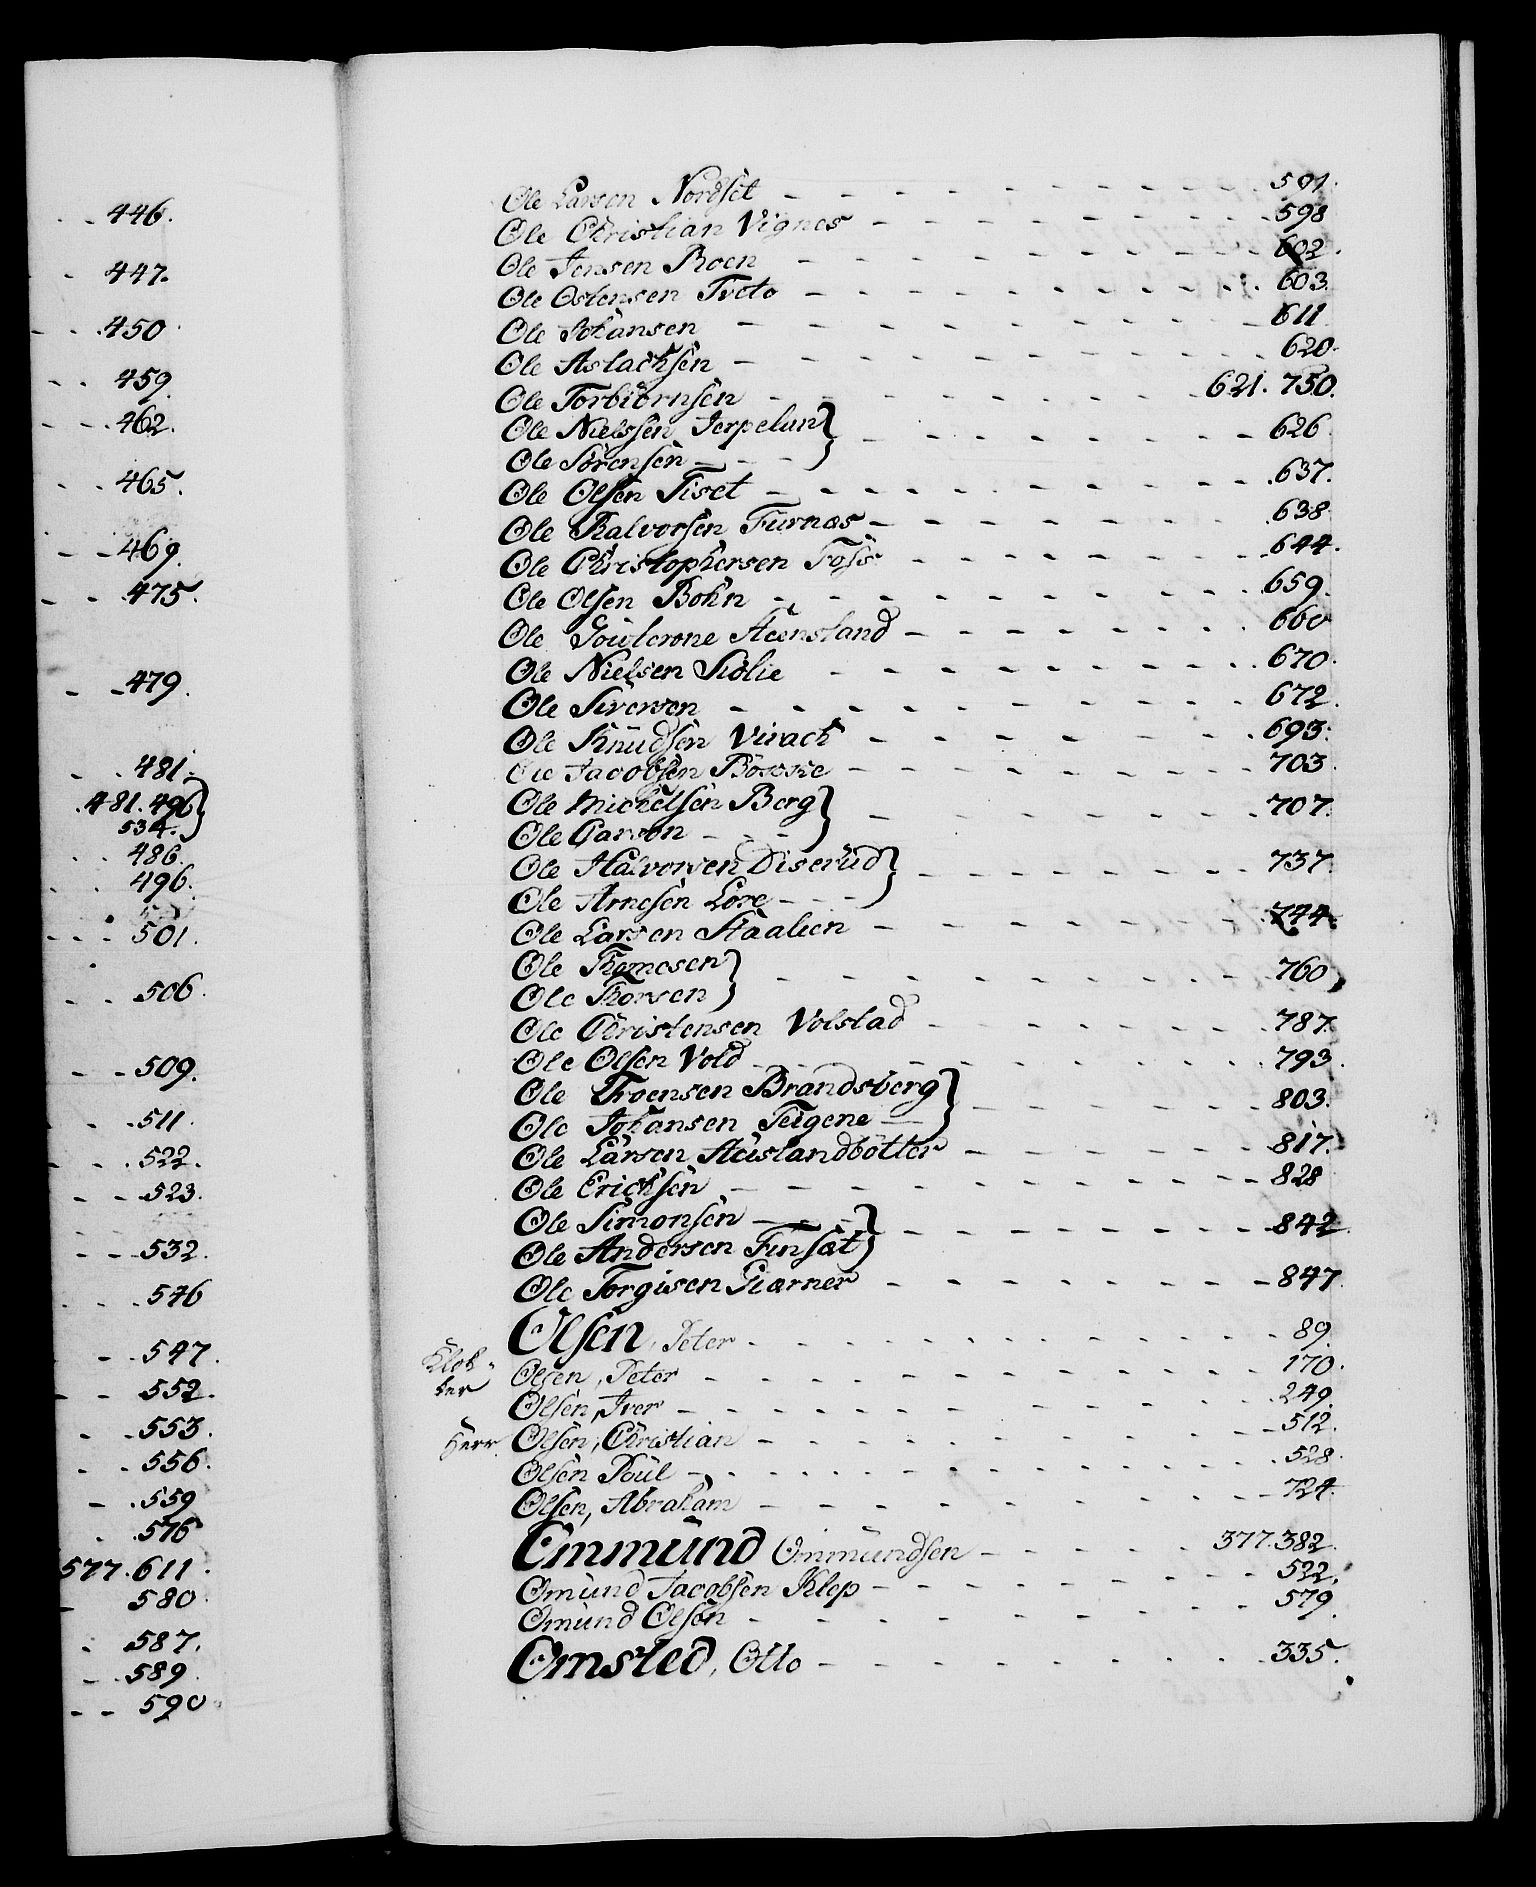 446.
447.
450
459.
462.
465.
469.
475.
479.
481.
481.496
534.
486.
496.
501.
506.
509.
511.
522.
523.
532.
546
547.
552.
553.
556.
559
576
577.611.
580.
587.
589.
590
Ole Larsen Nordset 591.
Ole Christian Vignes 598
Ole Jensen Roen 602.
Ole Ostensen Tveto 603.
Ole Johansen 611
Ole Aslachsen 620.
Ole Torbiörnsen 621. 750.
Ole Nielssen Jerpelun } 626
Ole Sörensen
Ole Olsen Tiset 637.
Ole Halvorsen Furnæs 638
Ole Christophersen Foss 644.
Ole Olsen Bohn 659.
Ole Houenstand 660
Ole Nielsen Schölie 670.
Ole Siversen 672.
Ole Knudsen Virack 693.
Ole Jacobsen 703
Ole Michelsen Berg } 707.
Ole Larson
Ole Halvorsen Diserüd } 737.
Ole Arnesen Lore
Ole Larsen Staalien 744.
Ole Thomesen } 760
Ole Thorsen
Ole Christensen Volstad 787.
Ole Olsen Vold 793
Ole Troensen Brandsberg } 803.
Ole Johansen Teigene
Ole Larsen 817.
Ole Ericksen 828
Ole Simonsen } 842.
Ole Andersen Finsæt
Ole Torgisen Giærner 847
Olsen, Peter 89.
Klok-
ker Olsen, Peter 170.
Olsen, Iver 249.
Herr Olsen, Christian 512.
Olsen Poul 528.
Olsen, Abraham 724.
Ommund Ommundsen 377.382.
Omund Jacobsen Klep 522.
Omund Olsen 579.
Omsted, Otto 335.